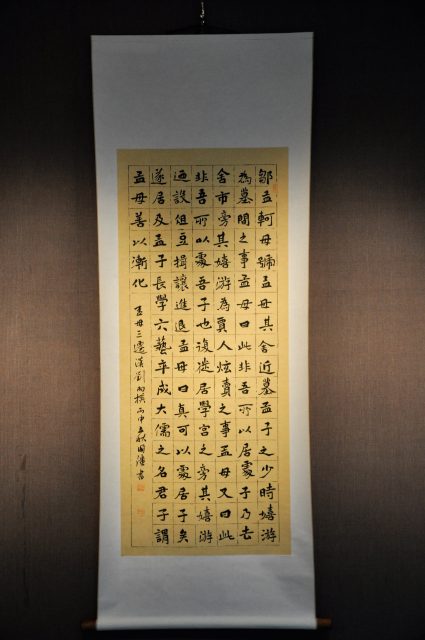 鄒孟軻母號孟母其舍近墓孟子之少時嬉游
為墓間之事孟母曰此非吾所以居處子乃去
舍市旁其嬉游為賈人炫賣之事孟母又曰此
非吾所以處吾子也復徙居學宮之旁其嬉游
迺設俎豆揖讓進退孟母曰真可以處居子矣
遂居及孟子長學六藝卒成大儒之名君子謂
孟母善以漸化
孟母三遷漢劉向撰丙申秋國書